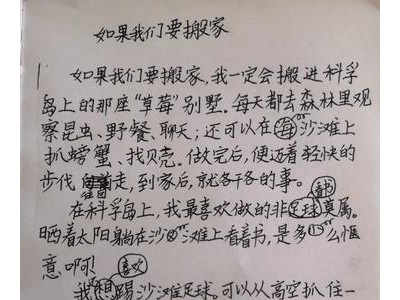 如果我们要搬家
如果我们要搬家，我一定会搬进科学
岛上的那座“草莓”别墅。每天都去森林里观
察昆虫、野餐、聊天；还可以在海沙滩上
抓螃蟹、找贝壳。做完后，便迈着轻快的
步伐走，到家后，就各干各的事。
看书
在科学岛上，我最喜欢做的非足球莫属。
晒着太阳躺在沙滩上看着书，是多么惬
意啊！
喜欢
我想踢沙滩足球。可以从高空抓住一